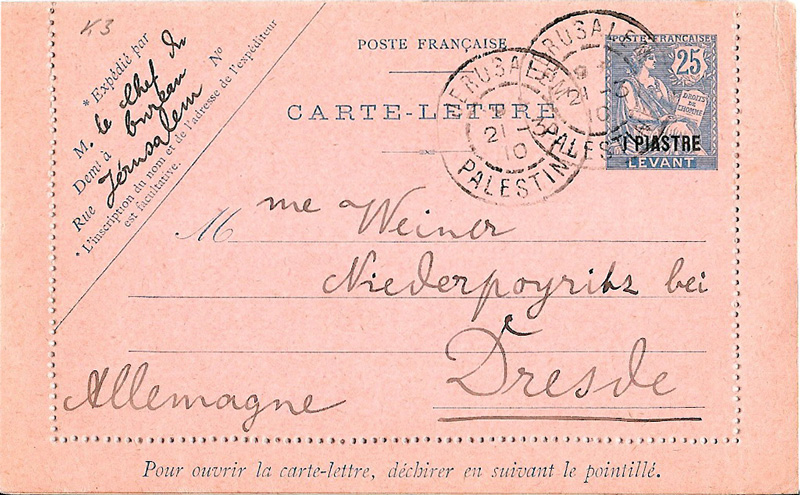 K3
* Expédié par
M. le chef du
bureau
Dem^t à Jérusalem
Rue N°
* L'inscription du nom et de l'adresse de l'expéditeur
est facultative.
POSTE FRANÇAISE
CARTE-LETTRE
JERUSALEM
21
10
PALESTINE
JERUSALEM
21
10
PALESTINE
POSTE FRANÇAISE
25
DROITS
DE
L'HOMME
1 PIASTRE
LEVANT
Mme Weiner
Niederpoyritz bei
Dresde
Allemagne
Pour ouvrir la carte-lettre, déchirer en suivant le pointillé.